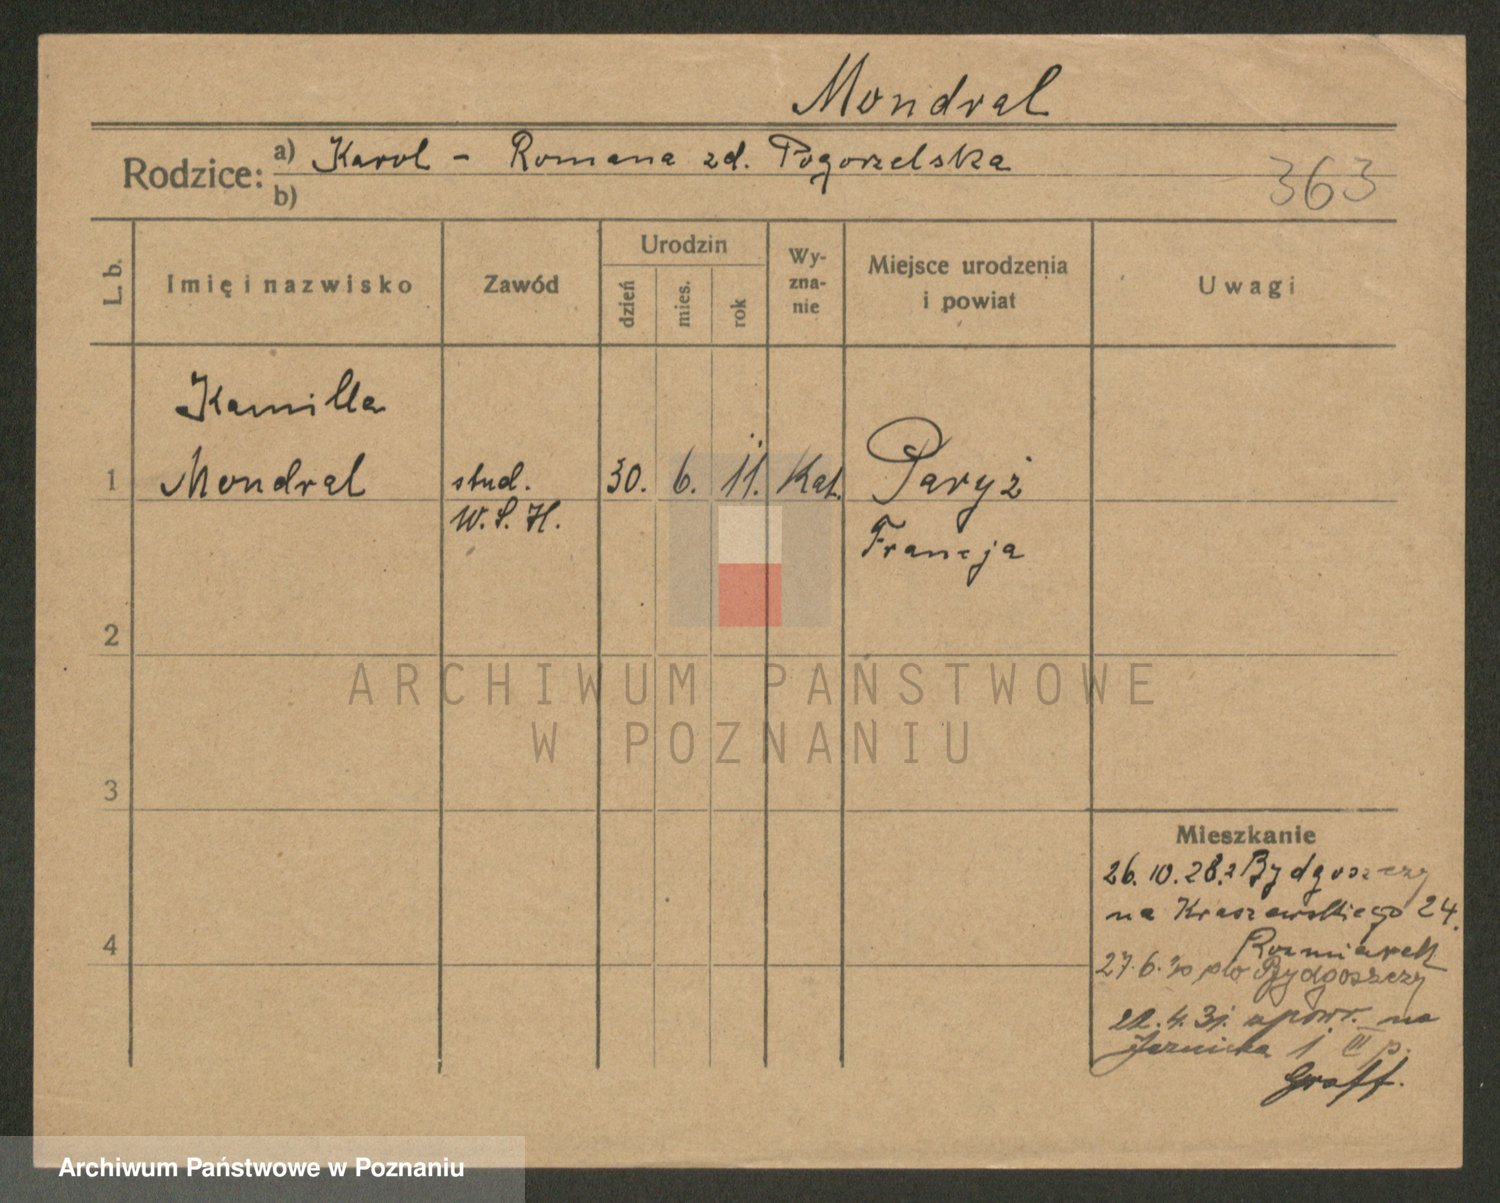 Mondral
Rodzice: a) Karol - Romana zd. Pogorzelska
b)
363
L. b.
Imię i nazwisko
Zawód
Urodzin
dzień
mies.
rok
Wy-
zna-
nie
Miejsce urodzenia
i powiat
Uwagi
Kamilla
1 Mondral stud. 30. 6. 11. Kat. Paryż
W. S. H. Francja
2
3
4
ARCHIWUM PAŃSTWOWE
W POZNANIU
Mieszkanie
26. 10. 28. z Bydgoszczy
na Kraszewskiego 24.
Rozmiarek
27. 6. 30 do Bydgoszczy
22. 4. 31. z powr. na
1 III p.
Graff.
Archiwum Państwowe w Poznaniu